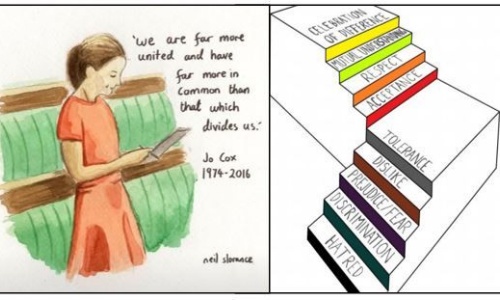 'we are far more
united and have
far more in
common than
that which
divides us.'
Jo Cox
1974-2016
neil slorance
CELEBRATION
OF DIFFERENCE
MUTUAL UNDERSTANDING
RESPECT
ACCEPTANCE
TOLERANCE
DISLIKE
PREJUDICE/FEAR
DISCRIMINATION
HATRED